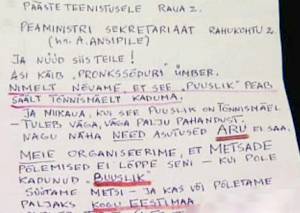 PÄÄSTE TEENISTUSELE RAUA 2.
PEAMINISTRI SEKRETARIAAT RAHUKOHTU 2.
(hr. A. ANSIPILE)
JA NÜÜD SIIS TEILE!
ASI KÄIB „PRONKSSÕDURI" ÜMBER.
NIMELT NÕUAME, ET SEE „PUUSLIK" PEAB
SÄÄLT TÕNNISMÄELT KADUMA.
JA NIIKAUA, KUI SEE PUUSLIK ON TÕNNISMÄEL
- TULEB VÄGA, VÄGA PALJU PAHANDUST.
NAGU NÄHA NEED ASUTUSED ARU EI SAA.
MEIE ORGANISEERIME, ET METSADE
PÕLEMISED EI LÕPPE SENI - KUI POLE
KADUNUD - „PUUSLIK"
SÜÜTAME METSI - JA KAS VÕI PÕLETAME
PALJAKS KOGU EESTIMAA.